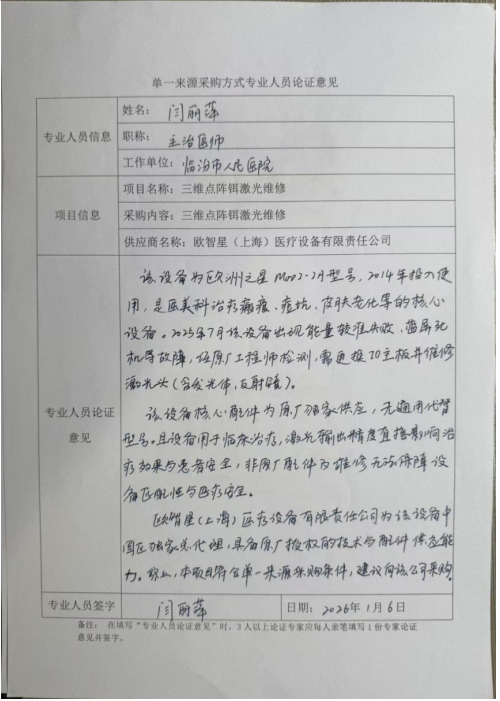 单一来源采购方式专业人员论证意见
专业人员信息
姓名： 闫丽萍
职称： 主治医师
工作单位： 临汾市人民医院
项目信息
项目名称：三维点阵铒激光维修
采购内容：三维点阵铒激光维修
供应商名称：欧智星（上海）医疗设备有限责任公司
专业人员论证
意见
该设备为欧洲之星M002-2A型号，2014年投入使
用，是医美科治疗瘢痕、痘坑、皮肤老化等的核心
设备。2025年7月该设备出现能量校准失败、蓝屏死
机等故障，经原厂工程师检测，需更换IO主板并维修
激光头（含发光体、反射镜）。
该设备核心配件为原厂独家供应，无通用代替
型号。且设备用于临床治疗，激光输出精度直接影响治
疗效果与患者安全，非原厂配件及维修无法保障设
备匹配性与医疗安全。
欧智星（上海）医疗设备有限责任公司为该设备中
国区独家总代理，具备原厂授权的技术与配件供应能
力。综上，本项目符合单一来源采购条件，建议向该公司采购。
专业人员签字
闫丽萍
日期： 2026年1月6日
备注： 在填写“专业人员论证意见”时，3人以上论证专家应每人亲笔填写1份专家论证
意见并签字。